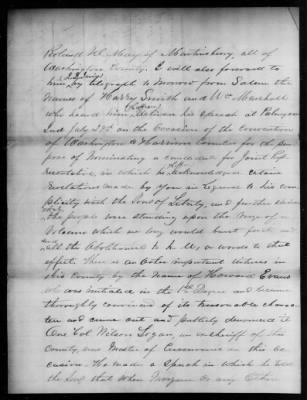 Roland W. May of Martinsburg, all of
Washington County. I will also forward to
him by telegraph to morrow from Salem the
names of Harry Smith and Wm Marshall
who heard him deliver his speech at Palmyra
Ind July 27th on the Occasion of the convention
of Washington & Harrison Counties for the pur
pose of Nominating a candidate for Joint rep
resentative, in which he acknowledged certain
Revelations made by you in regard to his com
plicity with the Sons of Liberty, and further said
the people were standing upon the verge of a
Volcano which ere long would burst forth and
all the Abolitionists to h-ll, or words to that
effect. There is another important witness in
this County by the Name of Howard Evans
who was initiated in the 1st Degree and became
thoroughly convinced of its treasonable charac
ter and came out and publicly denounced it
One Col Wilson Logan ex sheriff of this
County, was Master of Ceremonies on this oc
casion. He made a speech in which he told
the that when Morgan or any Other